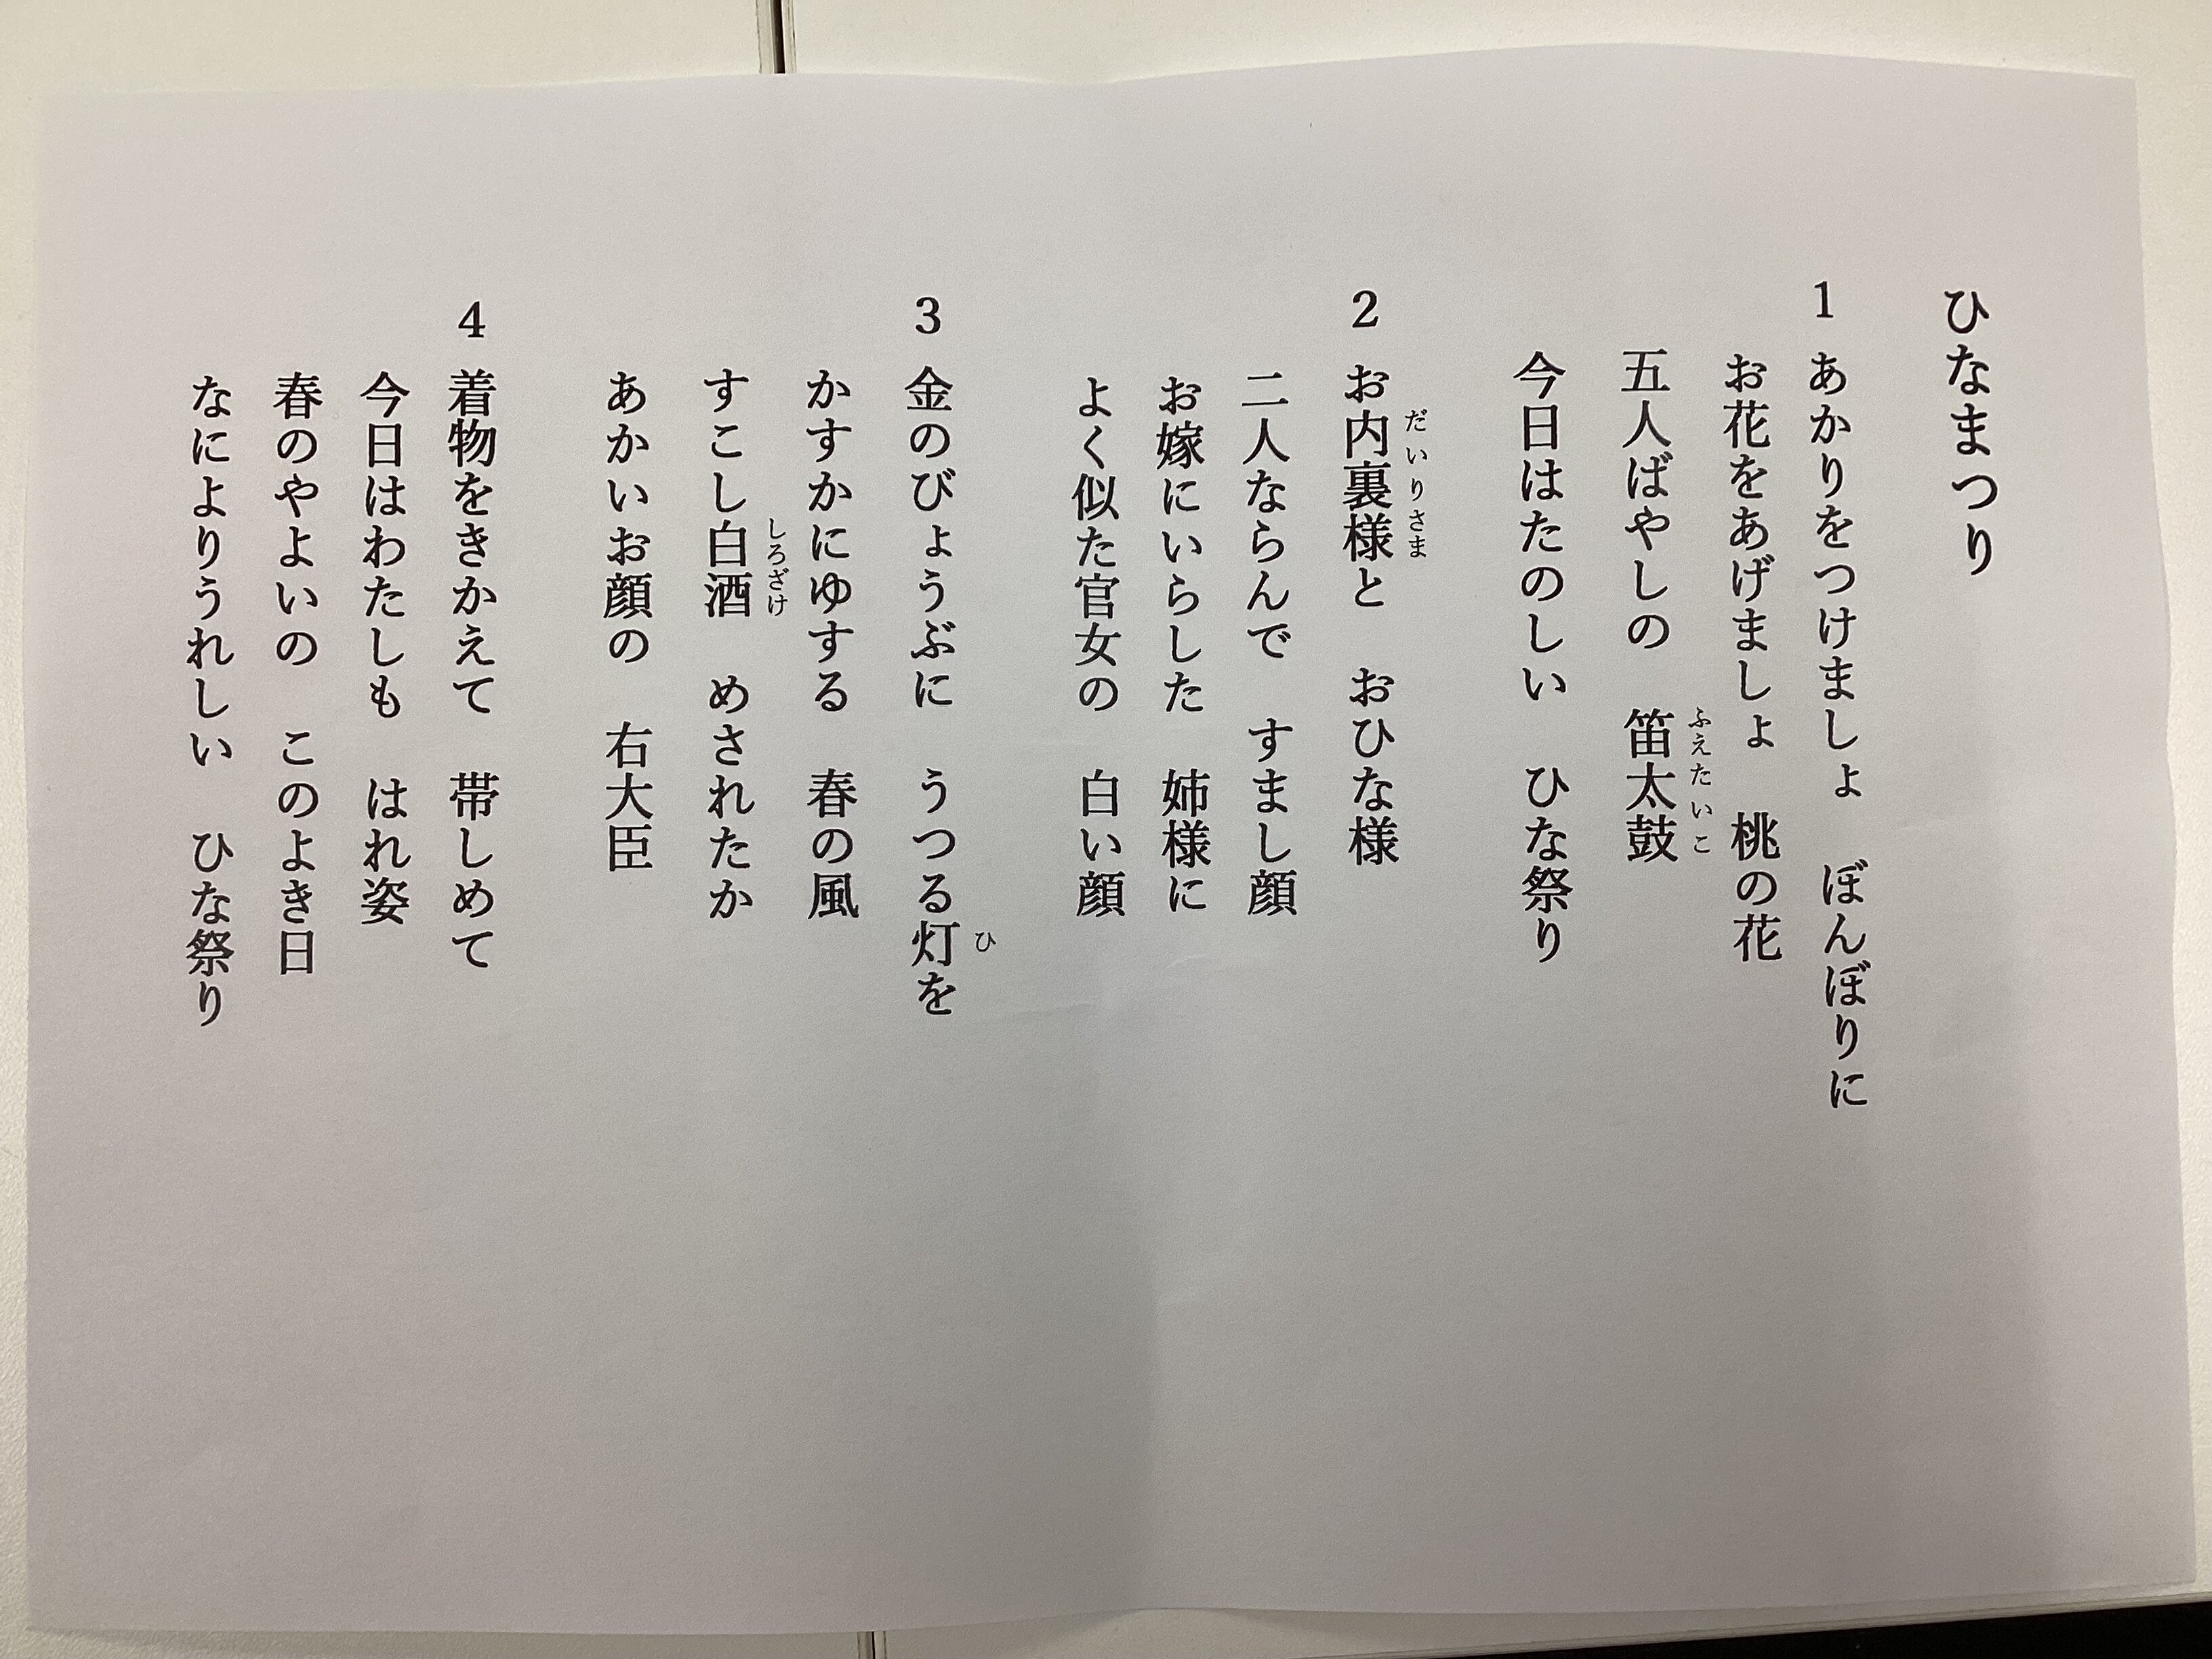 ひなまつり
1 あかりをつけましょ　ぼんぼりに
お花をあげましょ　桃の花
五人ばやしの　笛太鼓
ふえたいこ
今日はたのしい　ひな祭り
2 お内裏様と　おひな様
だいりさま
二人ならんで　すまし顔
お嫁にいらした　姉様に
よく似た官女の　白い顔
3 金のびょうぶに　うつる灯を
ひ
かすかにゆする　春の風
すこし白酒　めされたか
しろざけ
あかいお顔の　右大臣
4 着物をきかえて　帯しめて
今日はわたしも　はれ姿
春のやよいの　このよき日
なによりうれしい　ひな祭り